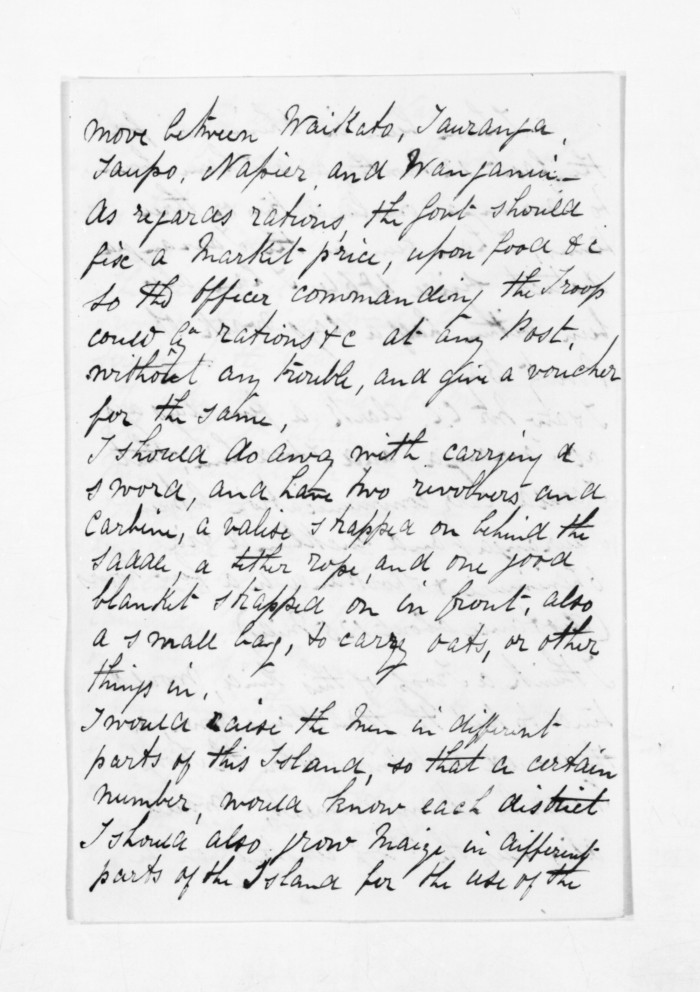 move between Waikato, Tauranga,
Taupo, Napier, and Wanganui_
As regards rations, the Govt should
fix a Market price, upon food &c
so the officer commanding the Troop
could by rations &c at any Post,
without any trouble, and give a voucher
for the same,
I should do away with carrying a
sword, and have two revolvers and
Carbine, a valise strapped on behind the
saddle, a tether rope, and one good
blanket strapped on in front, also
a small bag, to carry oats, or other
things in,
I would raise the Men in different
parts of this Island, so that a certain
number, would know each district
I should also grow Maize in different
parts of the Island for the use of the